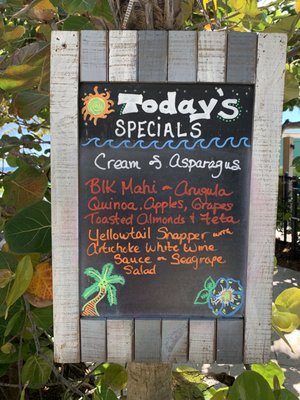 Today's
SPECIALS
Cream of Asparagus
Blk Mahi - Arugula
Quinoa, Apples, Grapes
Toasted Almonds & Feta
Yellowtail Snapper with
Artichoke White Wine
Sauce - Seagrape
Salad